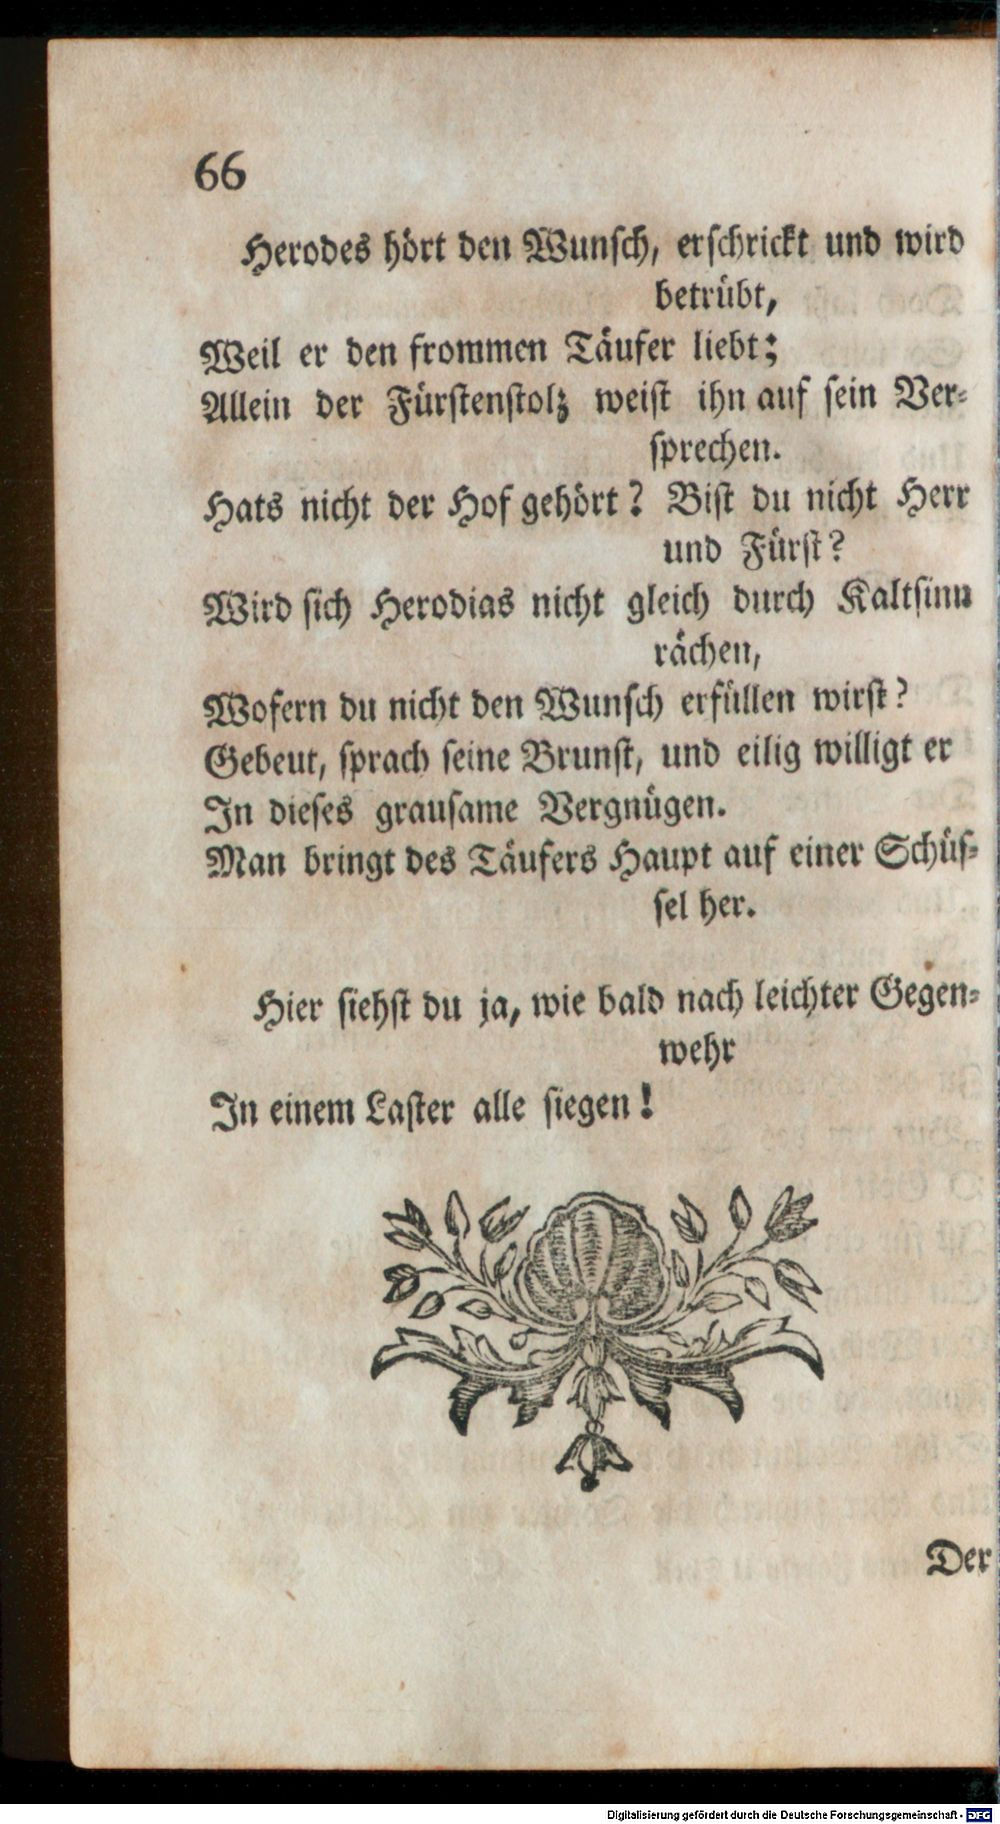 66
Herodes hört den Wunsch, erschrickt und wird
betrübt,
Weil er den frommen Täufer liebt;
Allein der Fürstenstolz weist ihn auf sein Ver-
sprechen.
Hats nicht der Hof gehört? Bist du nicht Herr
und Fürst?
Wird sich Herodias nicht gleich durch Kaltsinn
rächen,
Wofern du nicht den Wunsch erfüllen wirst?
Gebeut, sprach seine Brunst, und eilig willigt er
In dieses grausame Vergnügen.
Man bringt des Täufers Haupt auf einer Schüs-
sel her.
Hier siehst du ja, wie bald nach leichter Gegen-
wehr
In einem Laster alle siegen!
Der
Digitalisierung gefördert durch die Deutsche Forschungsgemeinschaft - DFG